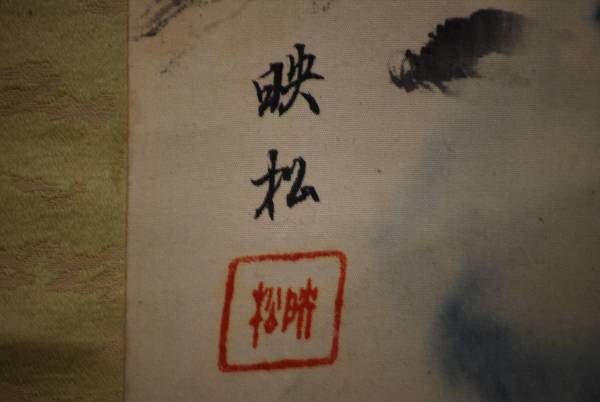 映松
映松